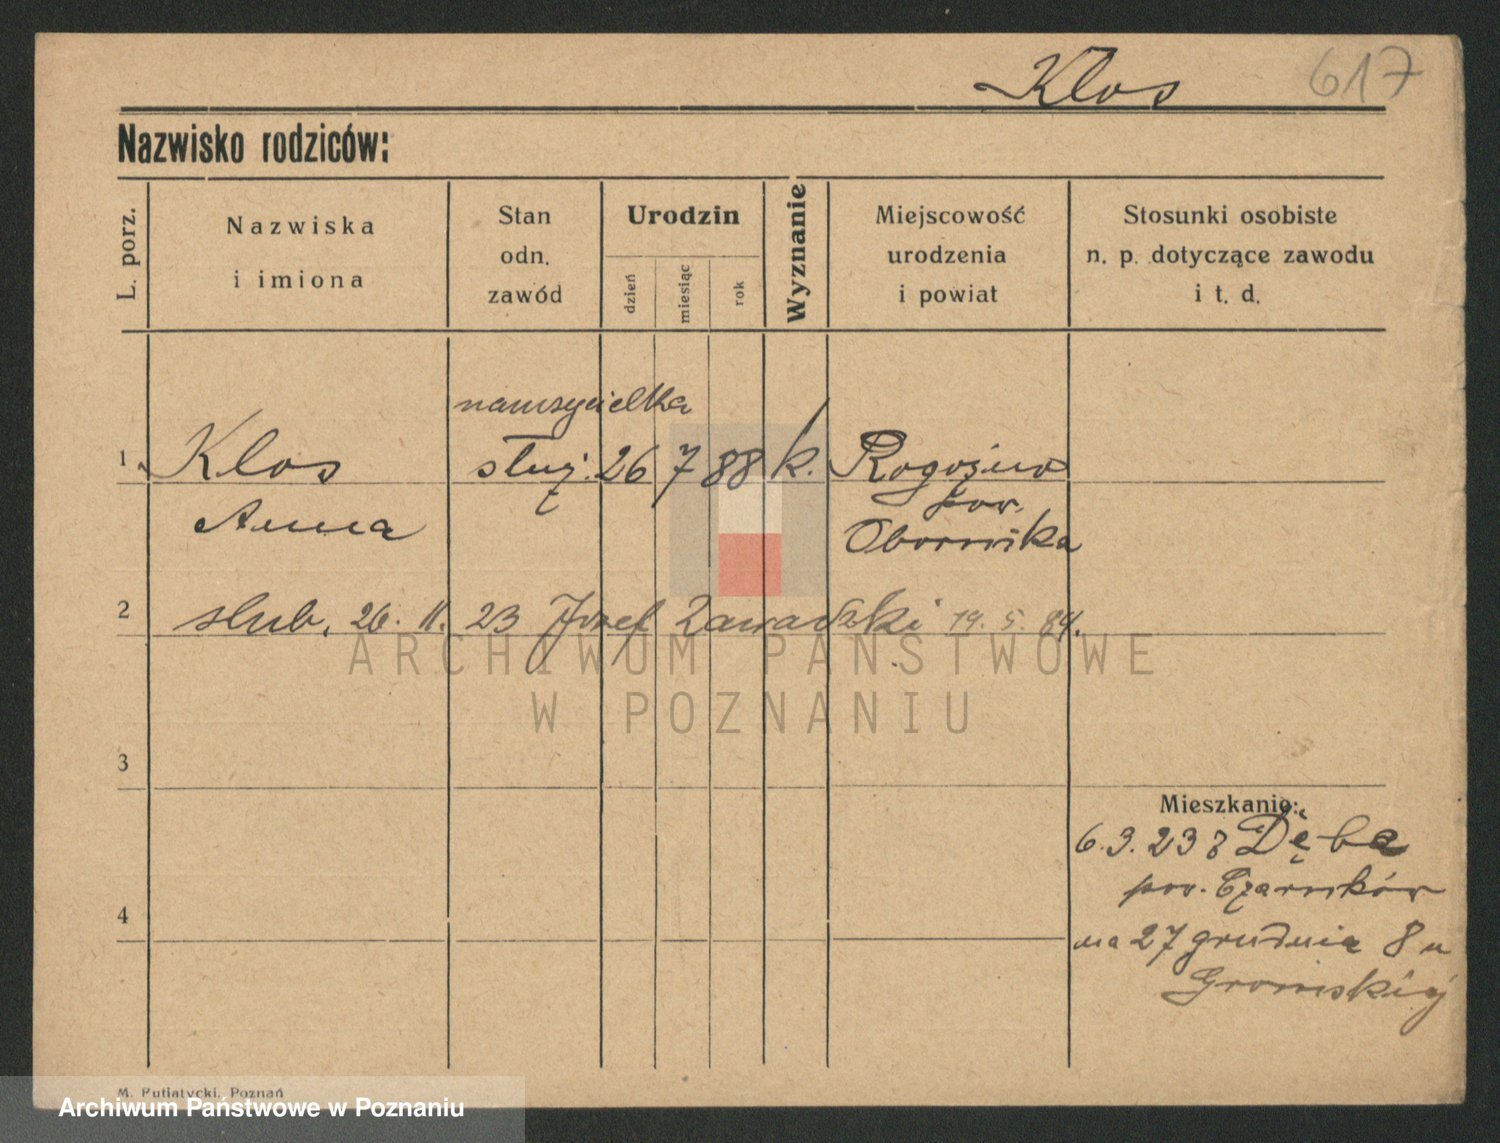 Klos
617
Nazwisko rodziców:
L. porz.
Nazwiska
i imiona
Stan
odn.
zawód
Urodzin
dzień
miesiąc
rok
Wyznanie
Miejscowość
urodzenia
i powiat
Stosunki osobiste
n. p. dotyczące zawodu
i t. d.
nauczycielka
1 Klos służ. 26 7 88 k. Rogoźno
Anna pow.
Obornika
2 slub. 26. 11. 23 Józef Zawadzki 19. 5. 84.
ARCHIWUM PAŃSTWOWE
W POZNANIU
3
Mieszkanie:
6.3.23 z Dęba
pow. Czarnków
4
na 27 grudnia 8 u
M. Putiatycki, Poznań
Archiwum Państwowe w Poznaniu